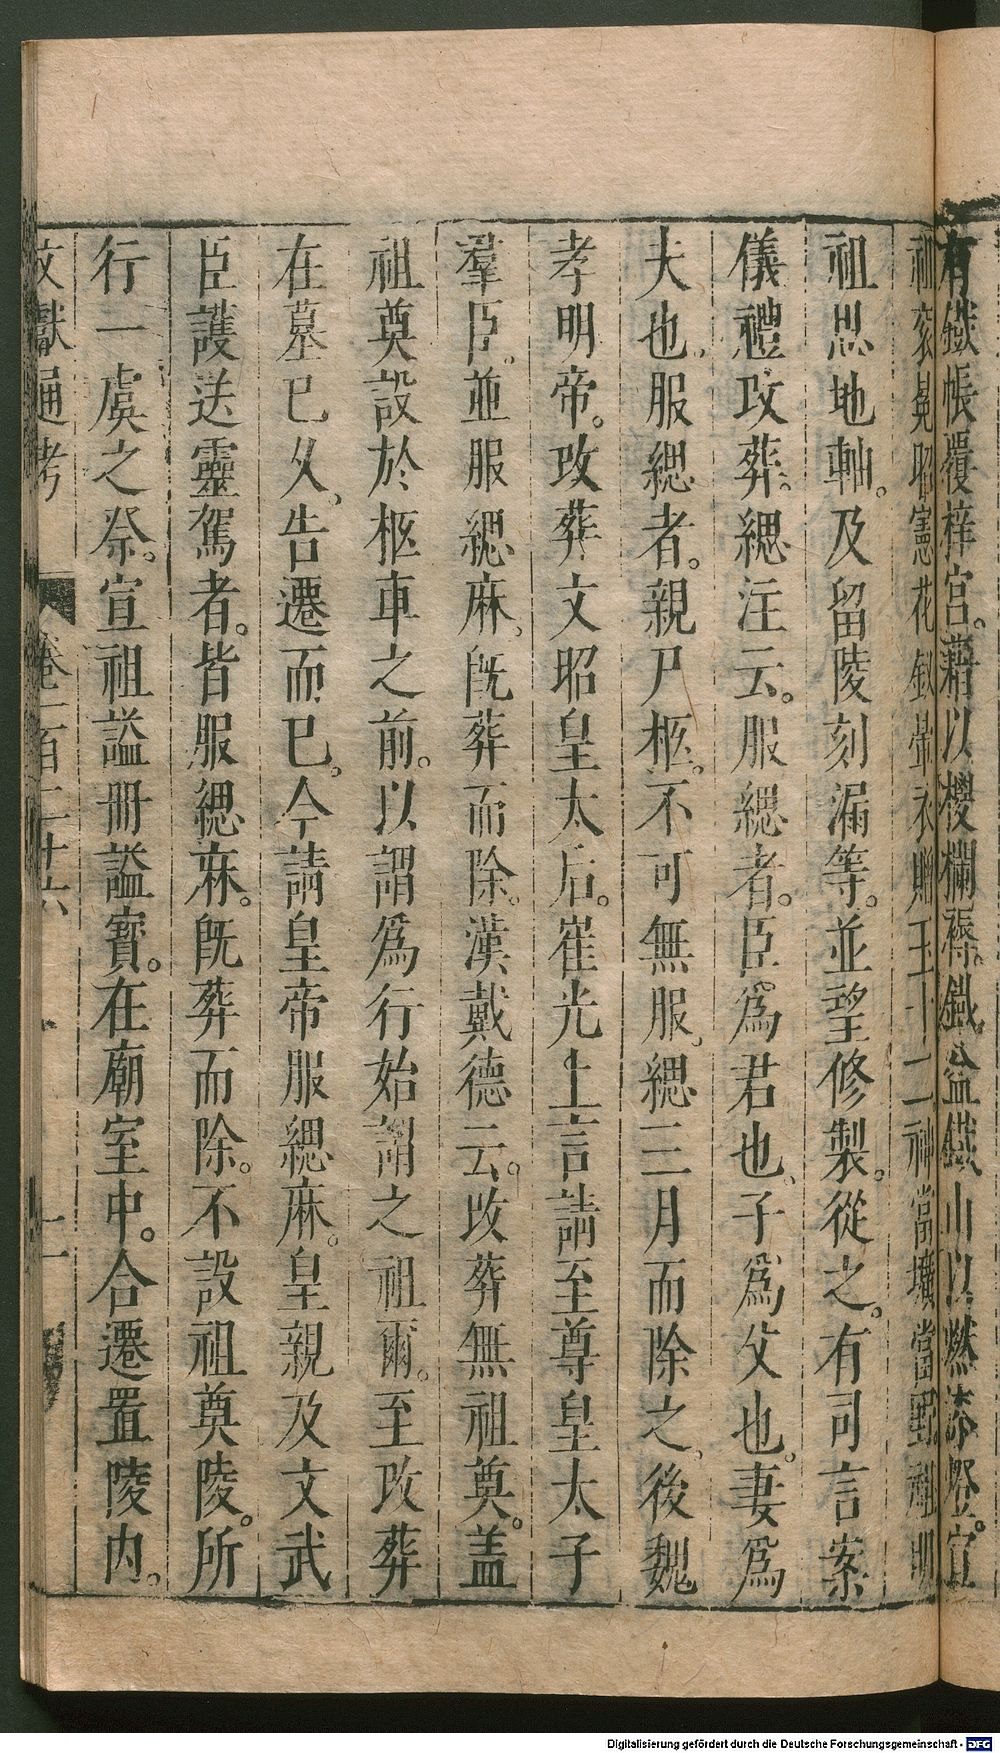 有鐵帳覆梓宮。藉以椶欄褥。鐵盆鐵山以燃漆燈。宣
祖袞冕昭憲花釵翬衣贈玉十二神當壙當野祖明
祖思地軸。及留陵刻漏等。並望修製。從之。有司言案
儀禮攻葬。緦注云。服緦者。臣爲君也、子爲父也。妻爲
夫也、服緦者。親尸柩。不可無服、緦三月而除之、後魏
孝明帝。攻葬文昭皇太后。崔光上言請至尊皇太子
羣臣。並服緦麻、旣葬而除。漢戴德云。攻葬無祖奠。蓋
祖奠設於柩車之前。以謂爲行始謂之祖爾。至攻葬
在墓巳久、告遷而巳。今請皇帝服緦麻。皇親及文武
臣護送靈駕者。皆服緦麻。旣葬而除。不設祖奠陵。所
行一虞之祭。宣祖謚冊謚寶。在廟室中。合遷置陵内。
文獻通考 卷一百二十六 十一
Digitalisierung gefördert durch die Deutsche Forschungsgemeinschaft - DFG